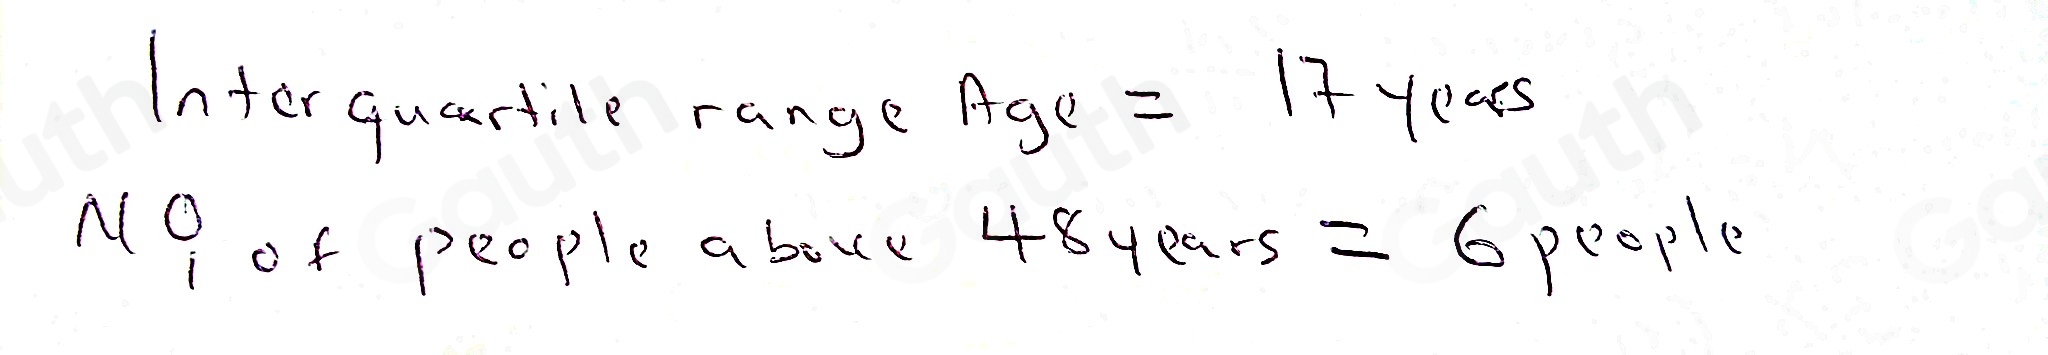 Interquartile range Age = 17 years
No. of people above 48 years = 6 people